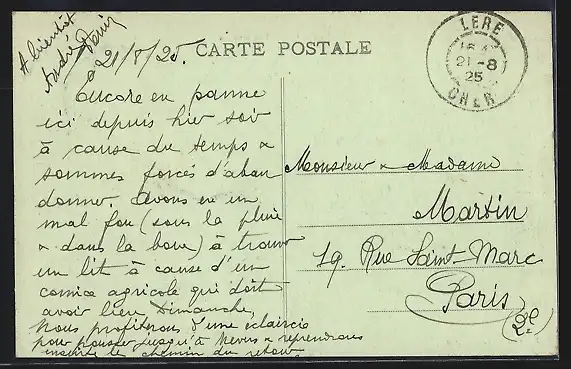 A bientôt
André Périn
21/8/25.
CARTE POSTALE
LERE
21-8
25
CHER
Encore en panne
ici depuis hier soir
à cause du temps &
sommes forcés d'aban
donner. Avons eu un
mal fou (sous la pluie
& dans la boue) à trouver
un lit à cause d'un
comice agricole qui doit
avoir lieu Dimanche,
Nous profiterons d'une éclaircie
pour pousser jusqu'à Nevers & reprendrons
ensuite le chemin du retour.
Monsieur & Madame
Martin
19. Rue Saint-Marc
Paris
(2e)